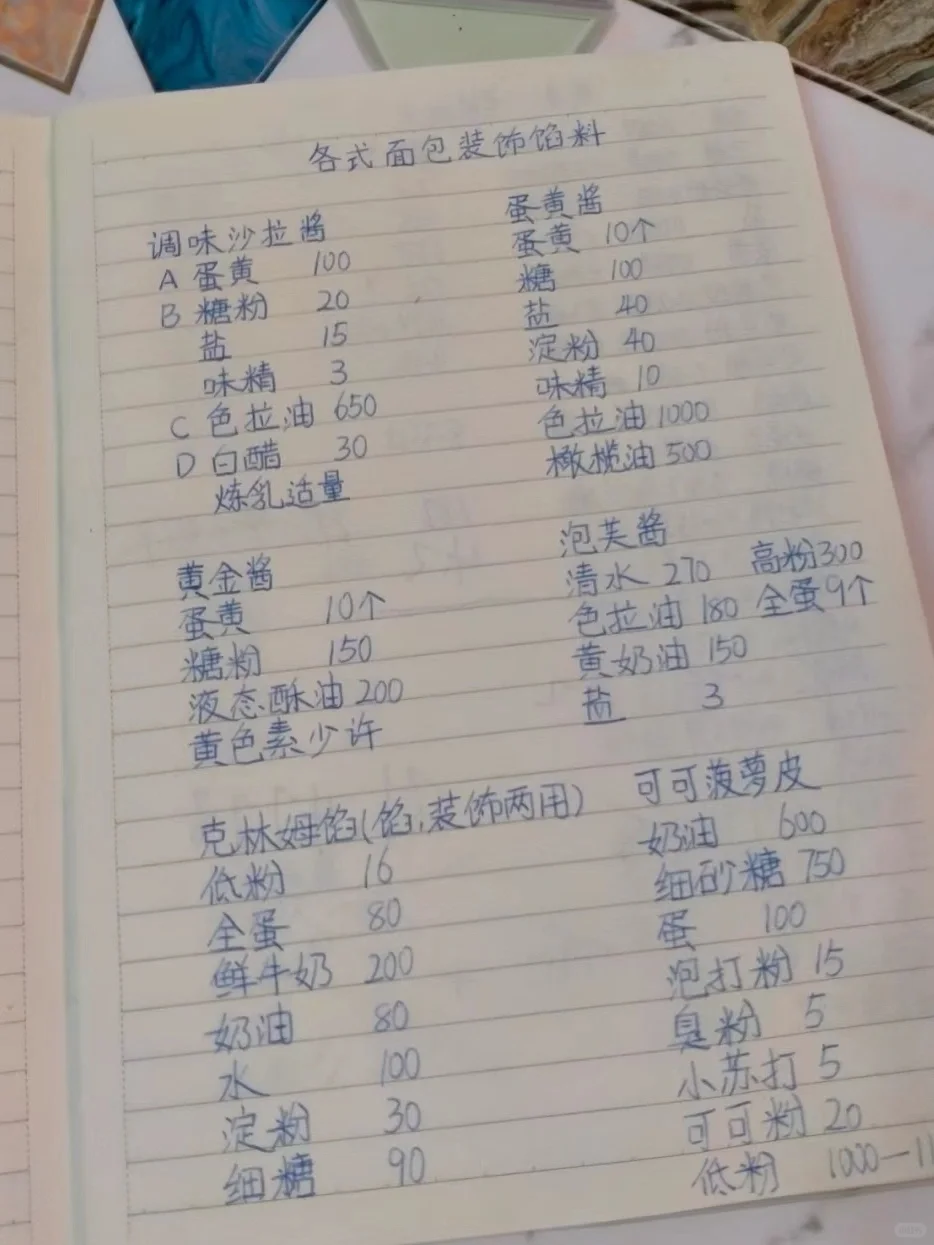 各式面包装饰馅料
调味沙拉酱
A 蛋黄 100
B 糖粉 20
盐 15
味精 3
C 色拉油 650
D 白醋 30
炼乳适量
蛋黄酱
蛋黄 10个
糖 100
盐 40
淀粉 40
味精 10
色拉油 1000
橄榄油 500
黄金酱
蛋黄 10个
糖粉 150
液态酥油 200
黄色素少许
泡芙酱
清水 270 高粉300
色拉油 180 全蛋9个
黄奶油 150
盐 3
克林姆馅(馅,装饰两用)
低粉 16
全蛋 80
鲜牛奶 200
奶油 80
水 100
淀粉 30
细糖 90
可可菠萝皮
奶油 600
细砂糖 750
蛋 100
泡打粉 15
臭粉 5
小苏打 5
可可粉 20
低粉 1000—11